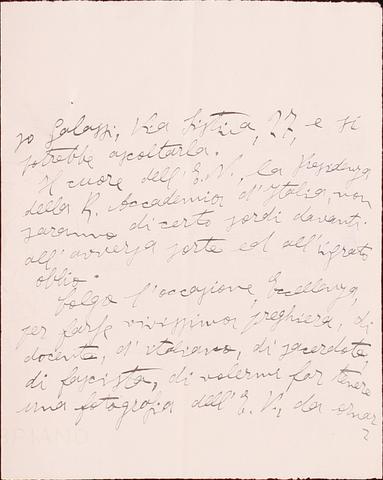 so Galassi, Via Sistina, 27, e si
potrebbe ascoltarla.
Il cuore dell'E. V., la Presidenza
della R. Accademia d'Italia, non
saranno di certo sordi davanti
all'avversa sorte ed all'ingrato
oblio.
Colgo l'occasione, Eccellenza,
per farle vivissima preghiera, di
docente, d'italiano, di sacerdote,
di fascista, di volermi far tenere
una fotografia dell'E. V., da ornar